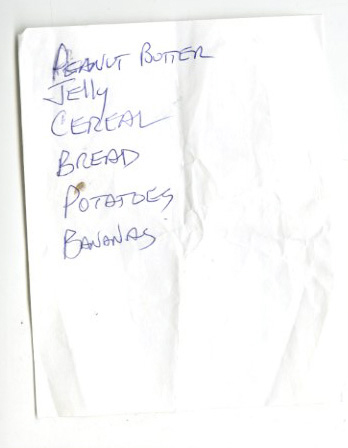 PEANUT BUTTER
Jelly
CEREAL
BREAD
POTATOES
BANANAS